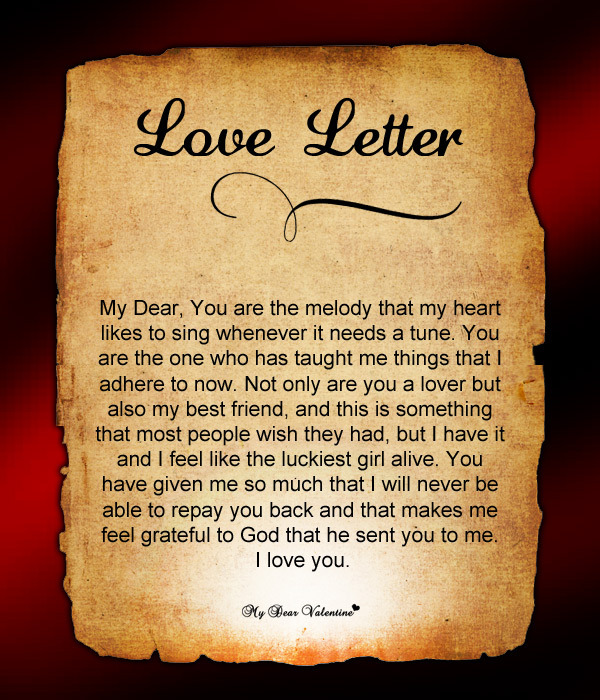 Love Letter
My Dear, You are the melody that my heart
likes to sing whenever it needs a tune. You
are the one who has taught me things that I
adhere to now. Not only are you a lover but
also my best friend, and this is something
that most people wish they had, but I have it
and I feel like the luckiest girl alive. You
have given me so much that I will never be
able to repay you back and that makes me
feel grateful to God that he sent you to me.
I love you.
My Dear Valentine